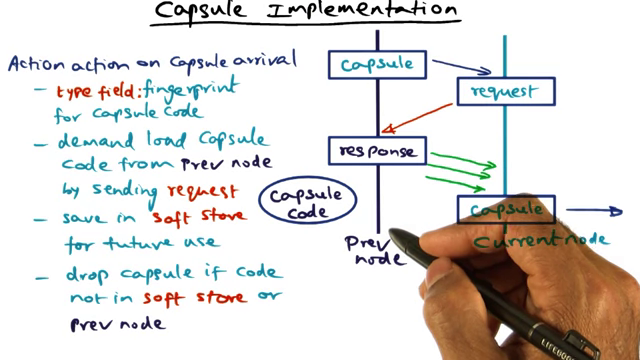 Capsule Implementation
Action action on Capsule arrival
- type field: fingerprint
for capsule code
- demand load Capsule
code from prev node
by sending request
- save in soft store
for future use
- drop capsule if code
not in soft store or
prev node
capsule
request
response
Capsule
code
capsule
Prev
node
Current node